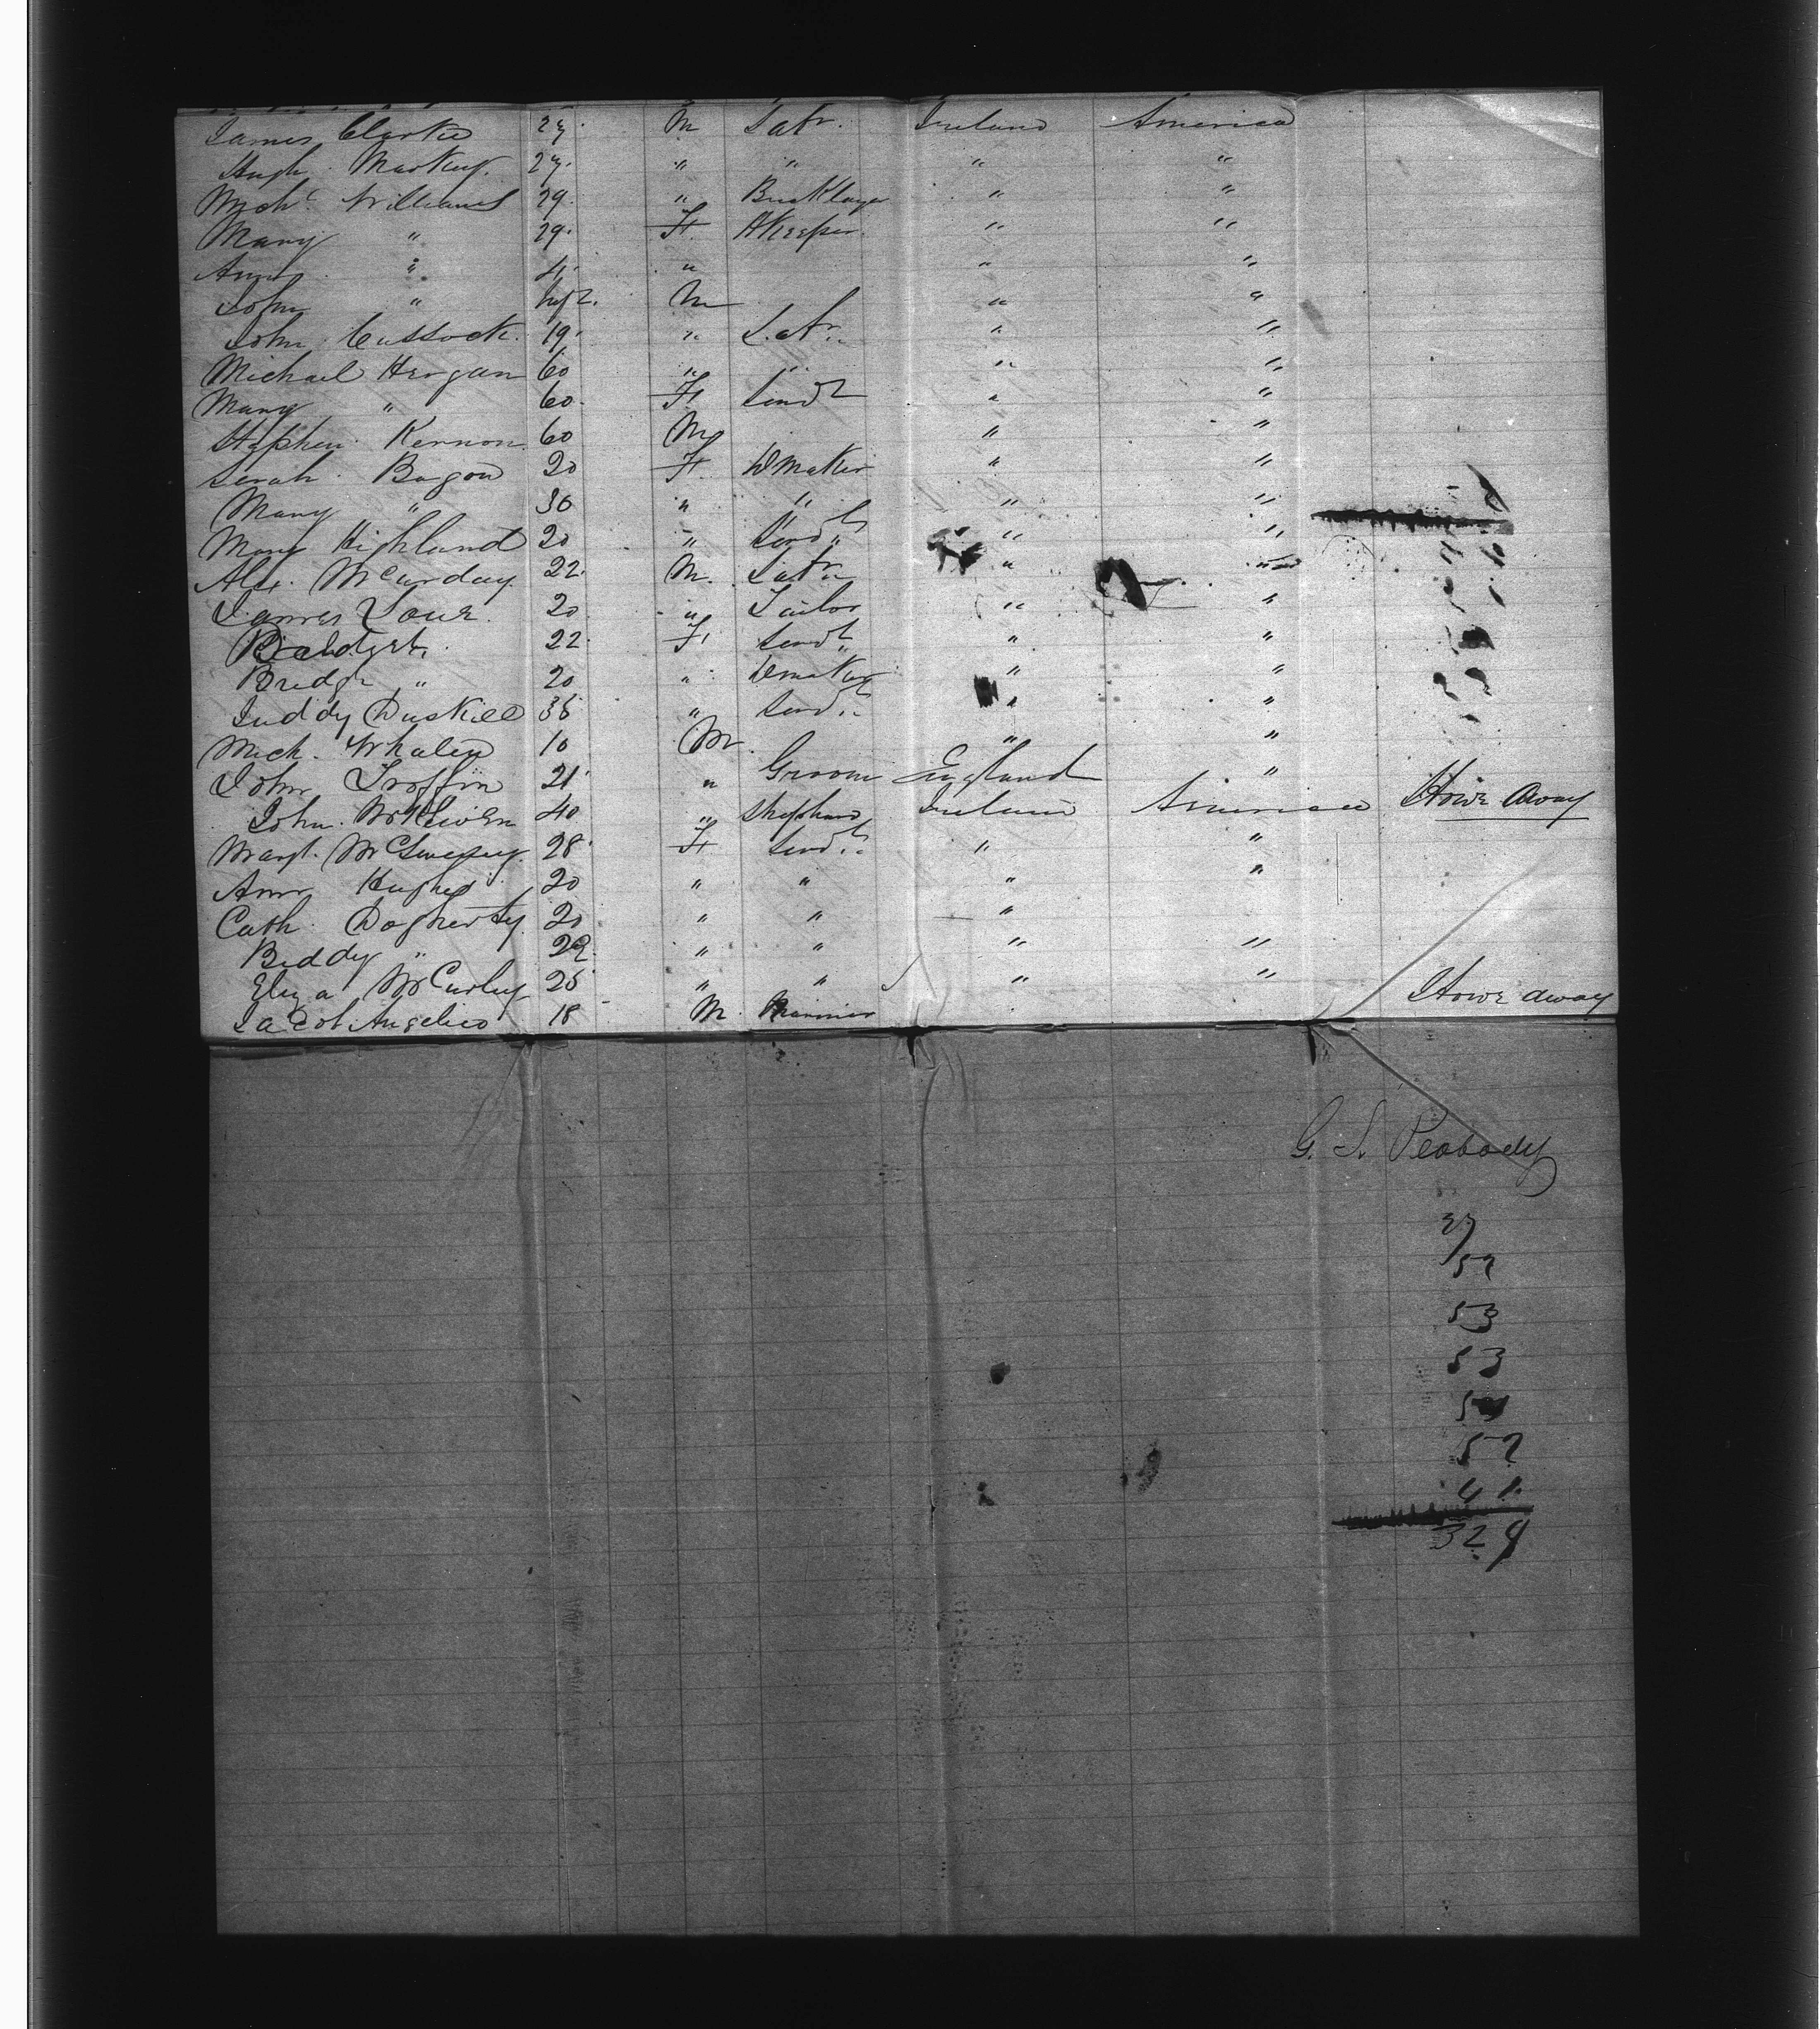 James Clarke 27 M Labr. Ireland America
Hugh Markey. 27. " " " "
Mich. Williams 29. " Bricklayer " "
Mary " 29. F. HKeeper. " "
Ann " 4 " " "
John " inft. M " "
John Cussock. 19. " Labr. " "
Michael Horgan 60 " " " "
Mary " 60. F. Servt " "
Stephen Kernon 60 M " "
Sarah Bogan 20 F. DMaker " "
Mary " 30 " " " "
Mary Highland 20 " Servt " "
Alx. McCurday. 22. M. Labr. " "
James 20 " Tailor " "
Bridget. 22. F. Servt. " "
Bridgt " 20 " Dmaker " "
Juddy Duskill 35 " Servt. " "
Mich. Whalen 10 M. " "
John Groffin 21 " Groom England "
John. 40 " Shepherd Ireland America Stowe away
Margt. McSweeney. 28 F Servt. " "
Ann Hughes 20 " " " "
Cath. Dogherty. 20 " " "
Biddy " 22. " " " "
Eliza McCurley 25 " " " "
Jacob Angelico 18 M. Mariner Stowe away
G. S. Peabody
27
52
53
53
5
52
41
329